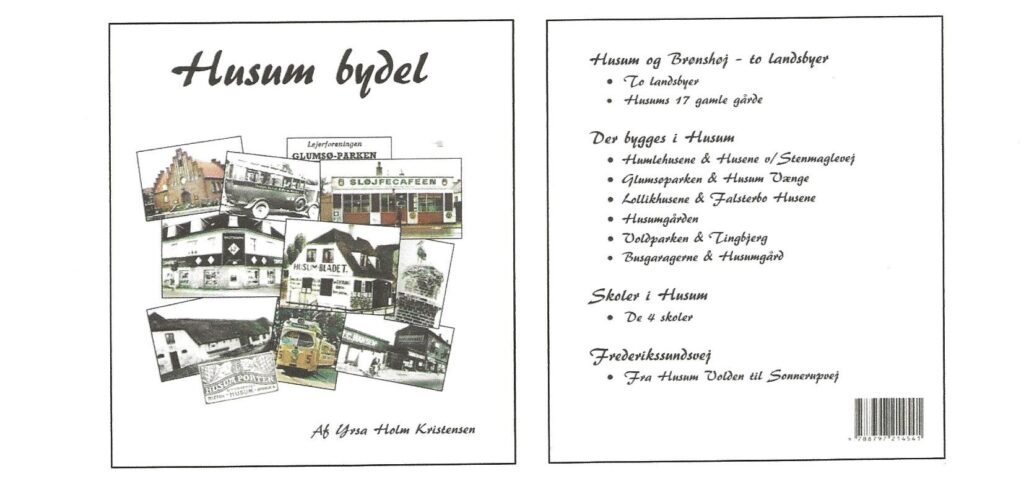 Husum bydel
Lejerforeningen
GLUMSØ-PARKEN
SLØJFECAFEEN
HUSUM-BLADET.
5
5
HUSUM PORTER
HUSUM
Af Yrsa Holm Kristensen
Husum og Brønshøj - to landsbyer
• To landsbyer
• Husums 17 gamle gårde
Der bygges i Husum
• Humlehusene & Husene v/Stenmaglevej
• Glumsøparken & Husum Vænge
• Lollikhusene & Falsterbo Husene
• Husumgården
• Voldparken & Tingbjerg
• Busgaragerne & Husumgård
Skoler i Husum
• De 4 skoler
Frederikssundsvej
• Fra Husum Volden til Sonnerupvej
9 788797 214541